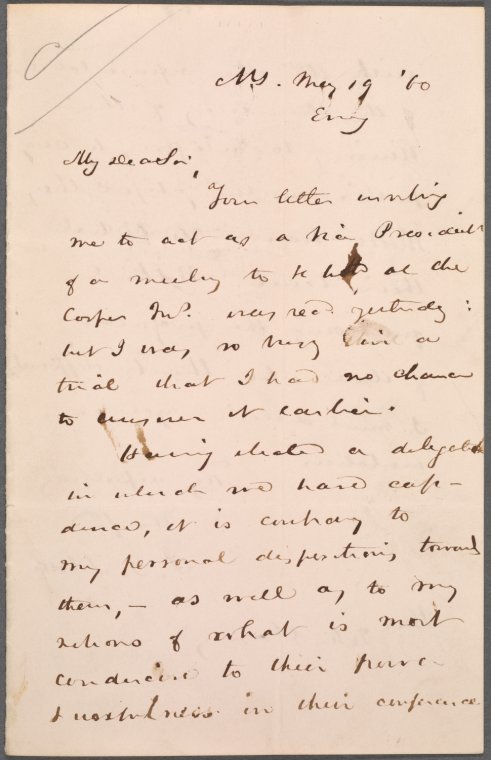 May 19 '60
Evg
My dear Sir,
Your letter inviting
me to act as a Vice President
of a meeting to be held at the
Cooper Ins. was recd yesterday:
but I was so busy in a
trial that I had no chance
to answer it earlier.
Having elected a delegation
in which we have confi-
dence, it is contrary to
my personal dispositions toward
them, – as well as to my
notions of what is most
conducive to their power
& usefulness in their conference